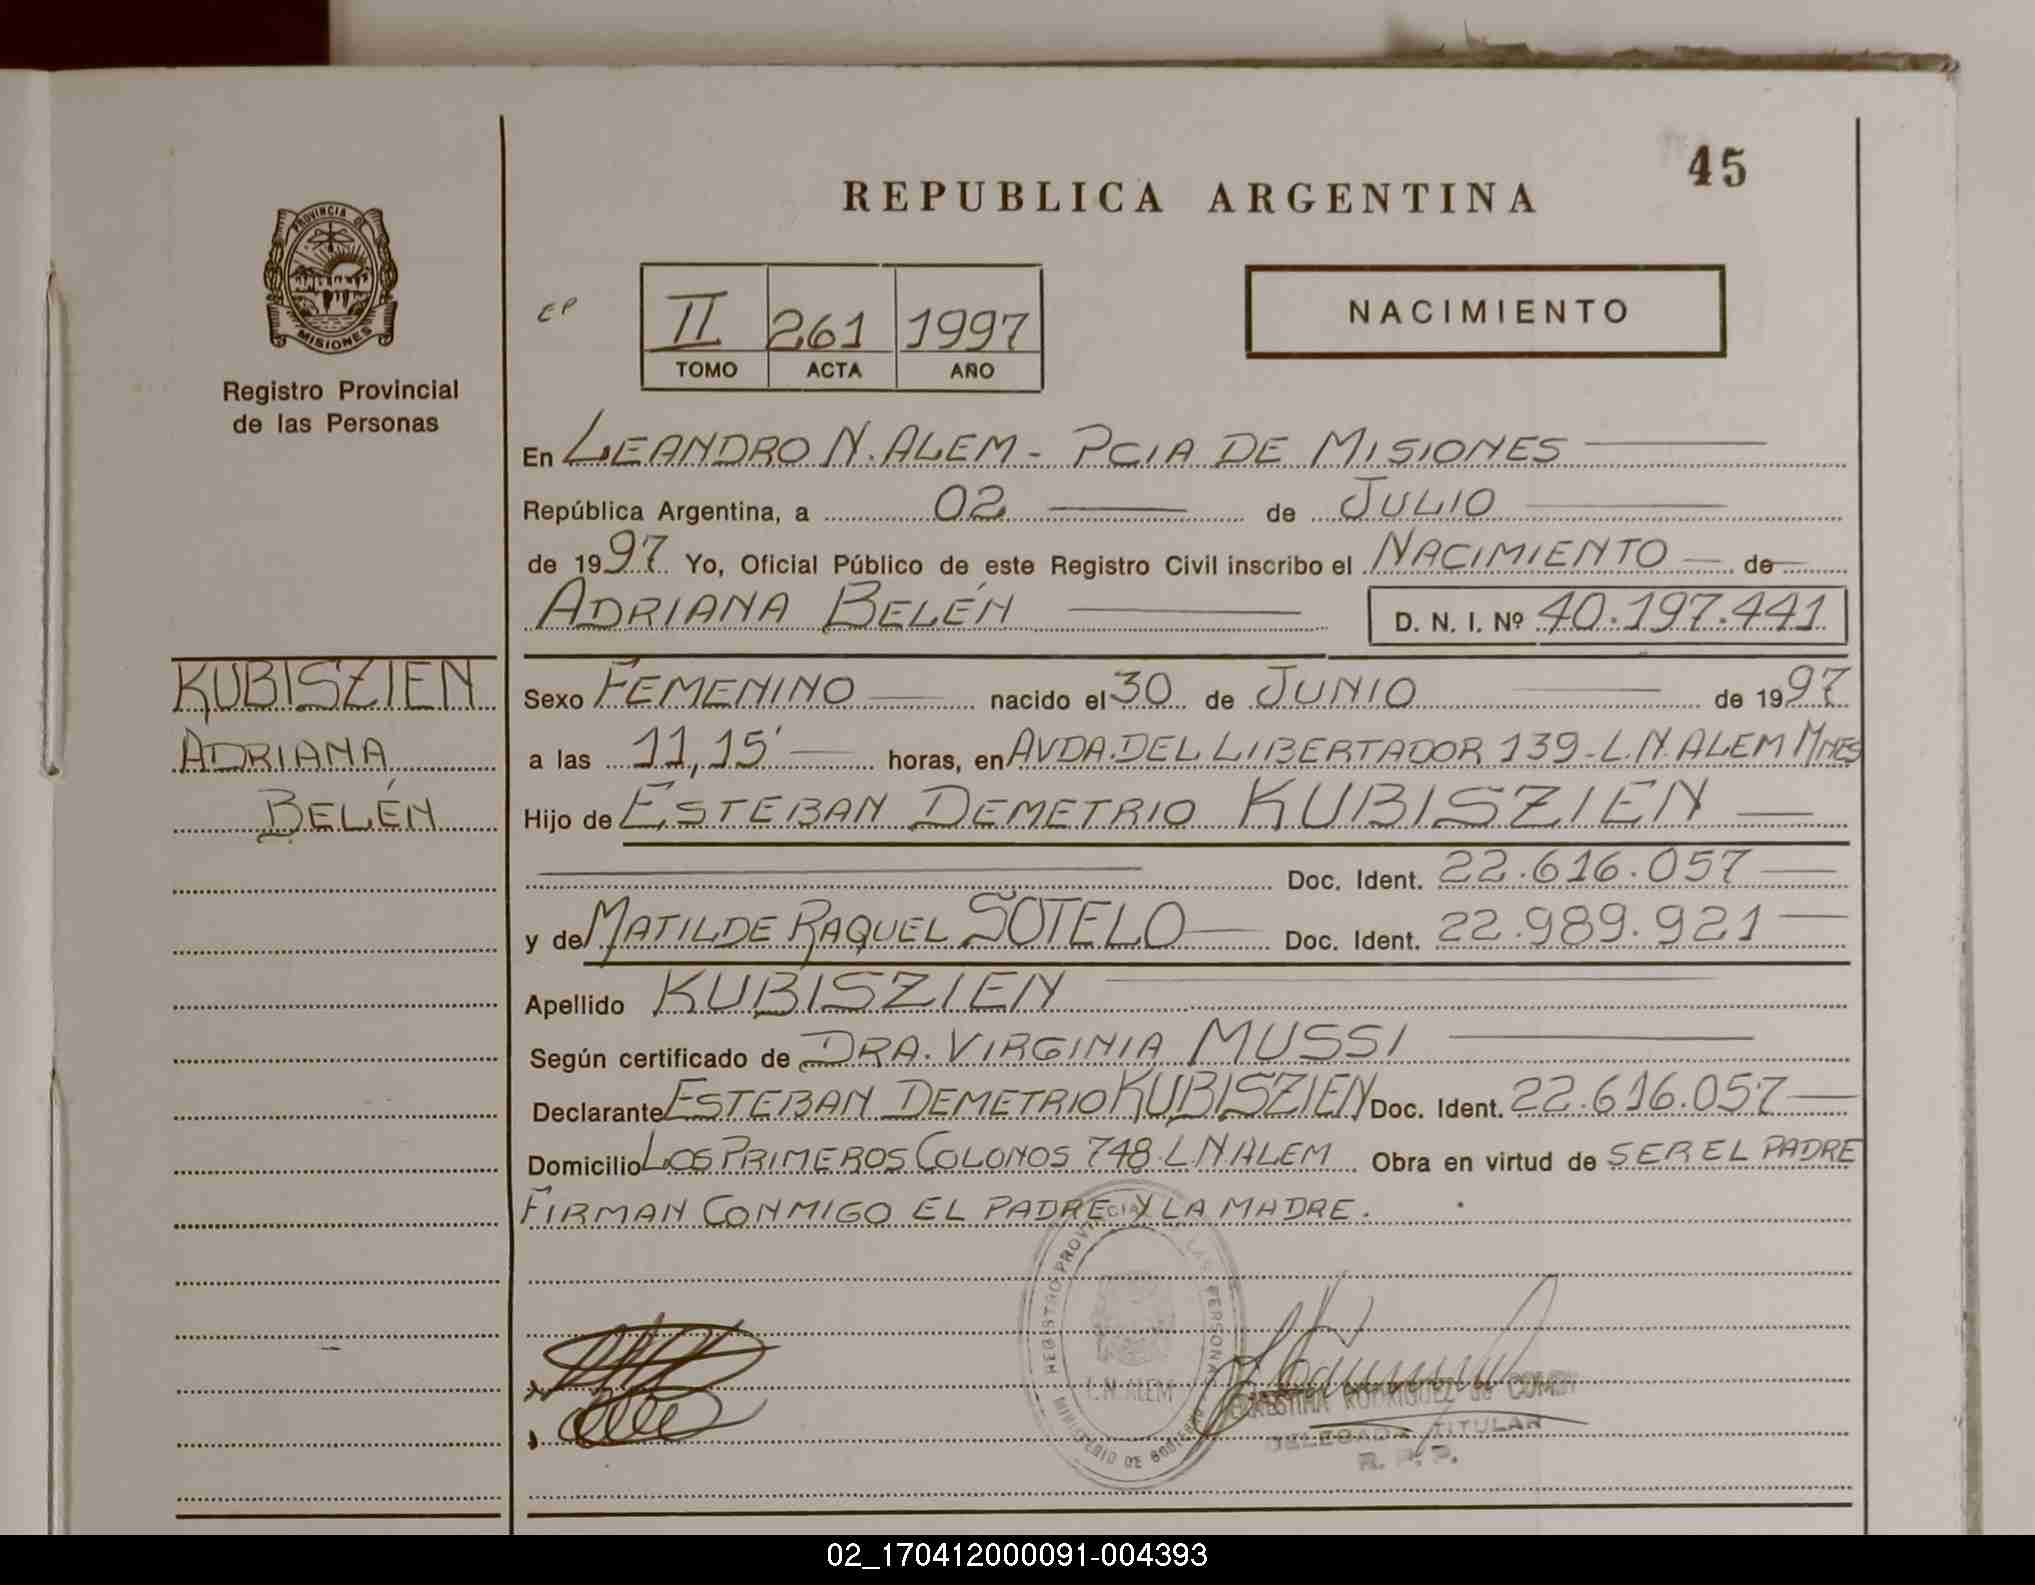 45
REPUBLICA ARGENTINA
PROVINCIA DE
MISIONES
Registro Provincial
de las Personas
CP
II 261 1997
TOMO ACTA AÑO
NACIMIENTO
En LEANDRO N. ALEM - PCIA DE MISIONES
República Argentina, a 02 de JULIO
de 1997 Yo, Oficial Público de este Registro Civil inscribo el NACIMIENTO de
ADRIANA BELÉN D. N. I. Nº 40.197.441
KUBISZIEN
ADRIANA
BELÉN
Sexo FEMENINO nacido el 30 de JUNIO de 1997
a las 11,15' horas, en AVDA. DEL LIBERTADOR 139 - L.N. ALEM Mnes
Hijo de ESTEBAN DEMETRIO KUBISZIEN
Doc. Ident. 22.616.057
y de MATILDE RAQUEL SOTELO Doc. Ident. 22.989.921
Apellido KUBISZIEN
Según certificado de DRA. VIRGINIA MUSSI
Declarante ESTEBAN DEMETRIO KUBISZIEN Doc. Ident. 22.616.057
Domicilio LOS PRIMEROS COLONOS 748 L N ALEM Obra en virtud de SER EL PADRE
FIRMAN CONMIGO EL PADRE Y LA MADRE.
REGISTRO PROVINCIAL LAS PERSONAS
L.N. ALEM
MINISTERIO DE GOBIERNO
RODRIGUEZ de
DELEGADA TITULAR
R. P. P.
02_170412000091-004393